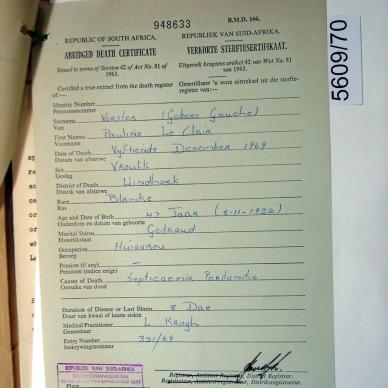 948633
B.M.D. 166.
REPUBLIC OF SOUTH AFRICA.
REPUBLIEK VAN SUID-AFRIKA.
ABRIDGED DEATH CERTIFICATE
VERKORTE STERFTESERTIFIKAAT.
Issued in terms of Section 42 of Act No. 81 of 1963.
Uitgereik kragtens artikel 42 van Wet No. 81 van 1963.
Certified a true extract from the death register of:—
Gesertifiseer 'n ware uittreksel uit die sterfteregister van:—
Identity Number
Persoonsnommer
Surname Vorster (Gebore Gauche)
Van
First Names Pauline Le Clair
Voorname
Date of Death Vyftiende Desember 1969
Datum van afsterwe
Sex Vroulik
Geslag
District of Death Windhoek
Distrik van afsterwe
Race Blanke
Ras
Age and Date of Birth 47 Jaar (3-11-1922)
Ouderdom en datum van geboorte
Marital Status Getroud
Huwelikstaat
Occupation Huisvrou
Beroep
Pension (if any) -
Pensioen (indien enige)
Causes of Death Septicaemia Peritonitis
Oorsake van dood
Duration of Disease or Last Illness 8 Dae
Duur van kwaal of laaste siekte
Medical Practitioner L. Krogh
Geneesheer
Entry Number 321/69
Inskrywingsnommer
REPUBLIEK VAN SUID-AFRIKA
Registrar, Assistant Registrar, District Registrar.
Registrateur, Assistentregistrateur, Distriksregistrateur.
Place
5609/70